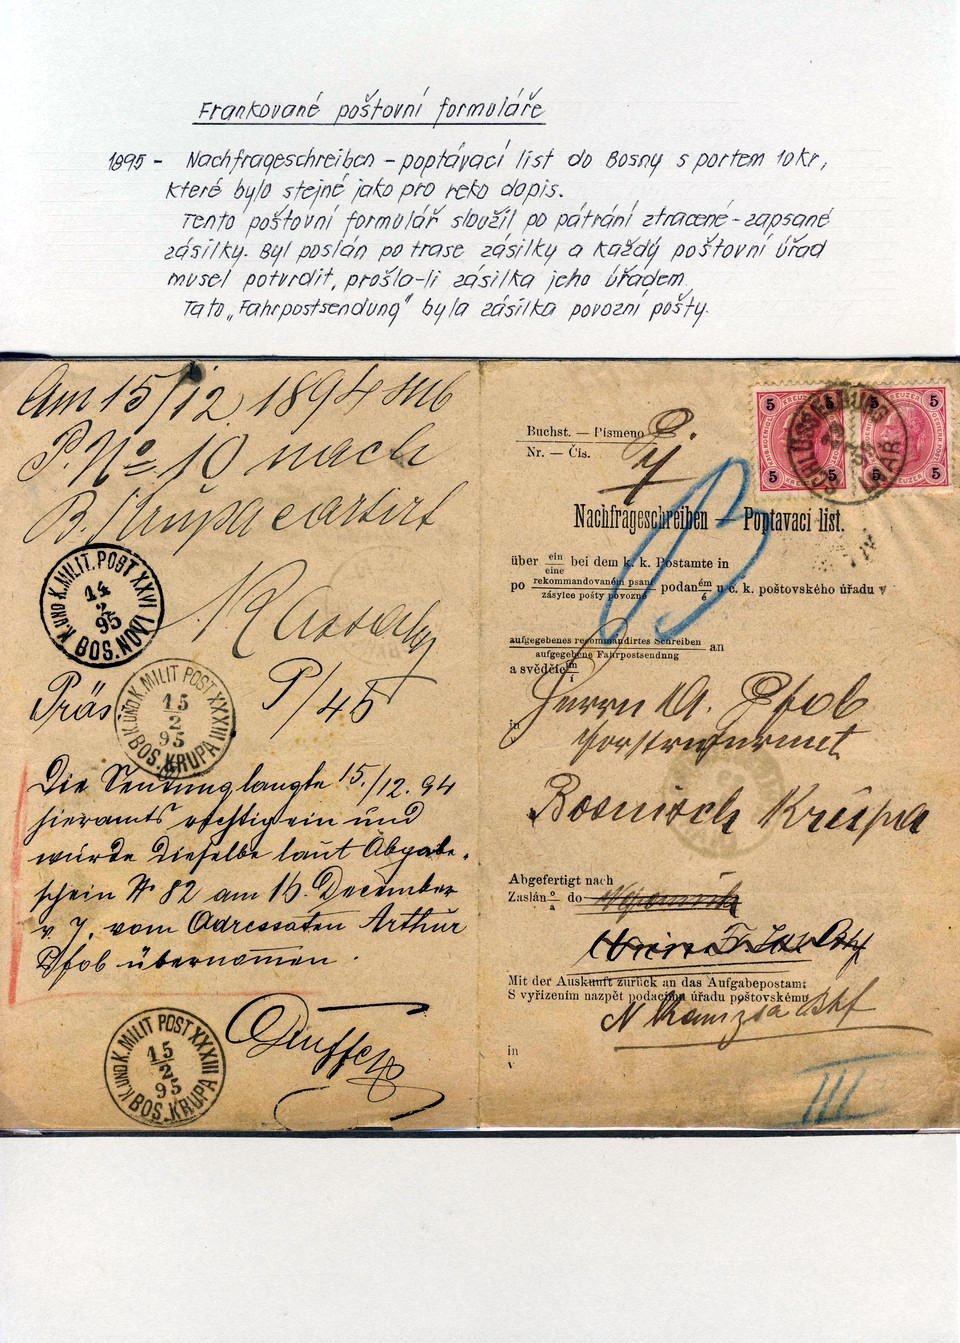 Frankované poštovní formuláře
1895 - Nachfrageschreiben - poptávací list do Bosny s portem 10kr,
které bylo stejné jako pro reko dopis.
Tento poštovní formulář sloužil po pátrání ztracené - zapsané
zásilky. Byl poslán po trase zásilky a každý poštovní úřad
musel potvrdit, prošla-li zásilka jeho úřadem.
Tato „Fahrpostsendung" byla zásilka povozní pošty.
Am 15/12 1894 mb
P. No 10 nach
B. Krupa cartirt
K. UND K. MILIT. POST XXVI
14
2
95
BOS. NOVI
Präs
P/45
K. UND K. MILIT POST XXXIII
15
2
95
BOS. KRUPA
Die Sendung langte 15./12. 94
hieramts richtig ein und
wurde dieselbe laut Abgabe-
schein No 82 am 16. December
v. J. vom Adressaten Arthur
Pfob übernommen.
K. UND K. MILIT POST XXXIII
15
2
95
BOS. KRUPA
5 5 5 5
5 5 5 5
Buchst. — Písmeno
Nr. — Čís.
Nachfrageschreiben — Poptavací list.
über ein bei dem k. k. Postamte in
eine
po rekommandovaném psaní podaném u c. k. poštovského úřadu v
zásylce pošty povozné é
aufgegebenes recommandirtes Schreiben an
aufgegebene Fahrpostsendung
a svědčící
Herrn A. Pfob
in
v
Bosnisch Krupa
Abgefertigt nach
Zaslán o do
a
Mit der Auskunft zurück an das Aufgabepostamt
S vyřízením nazpět podacímu úřadu poštovskému
N Kanizsa Bhf
in
v
III